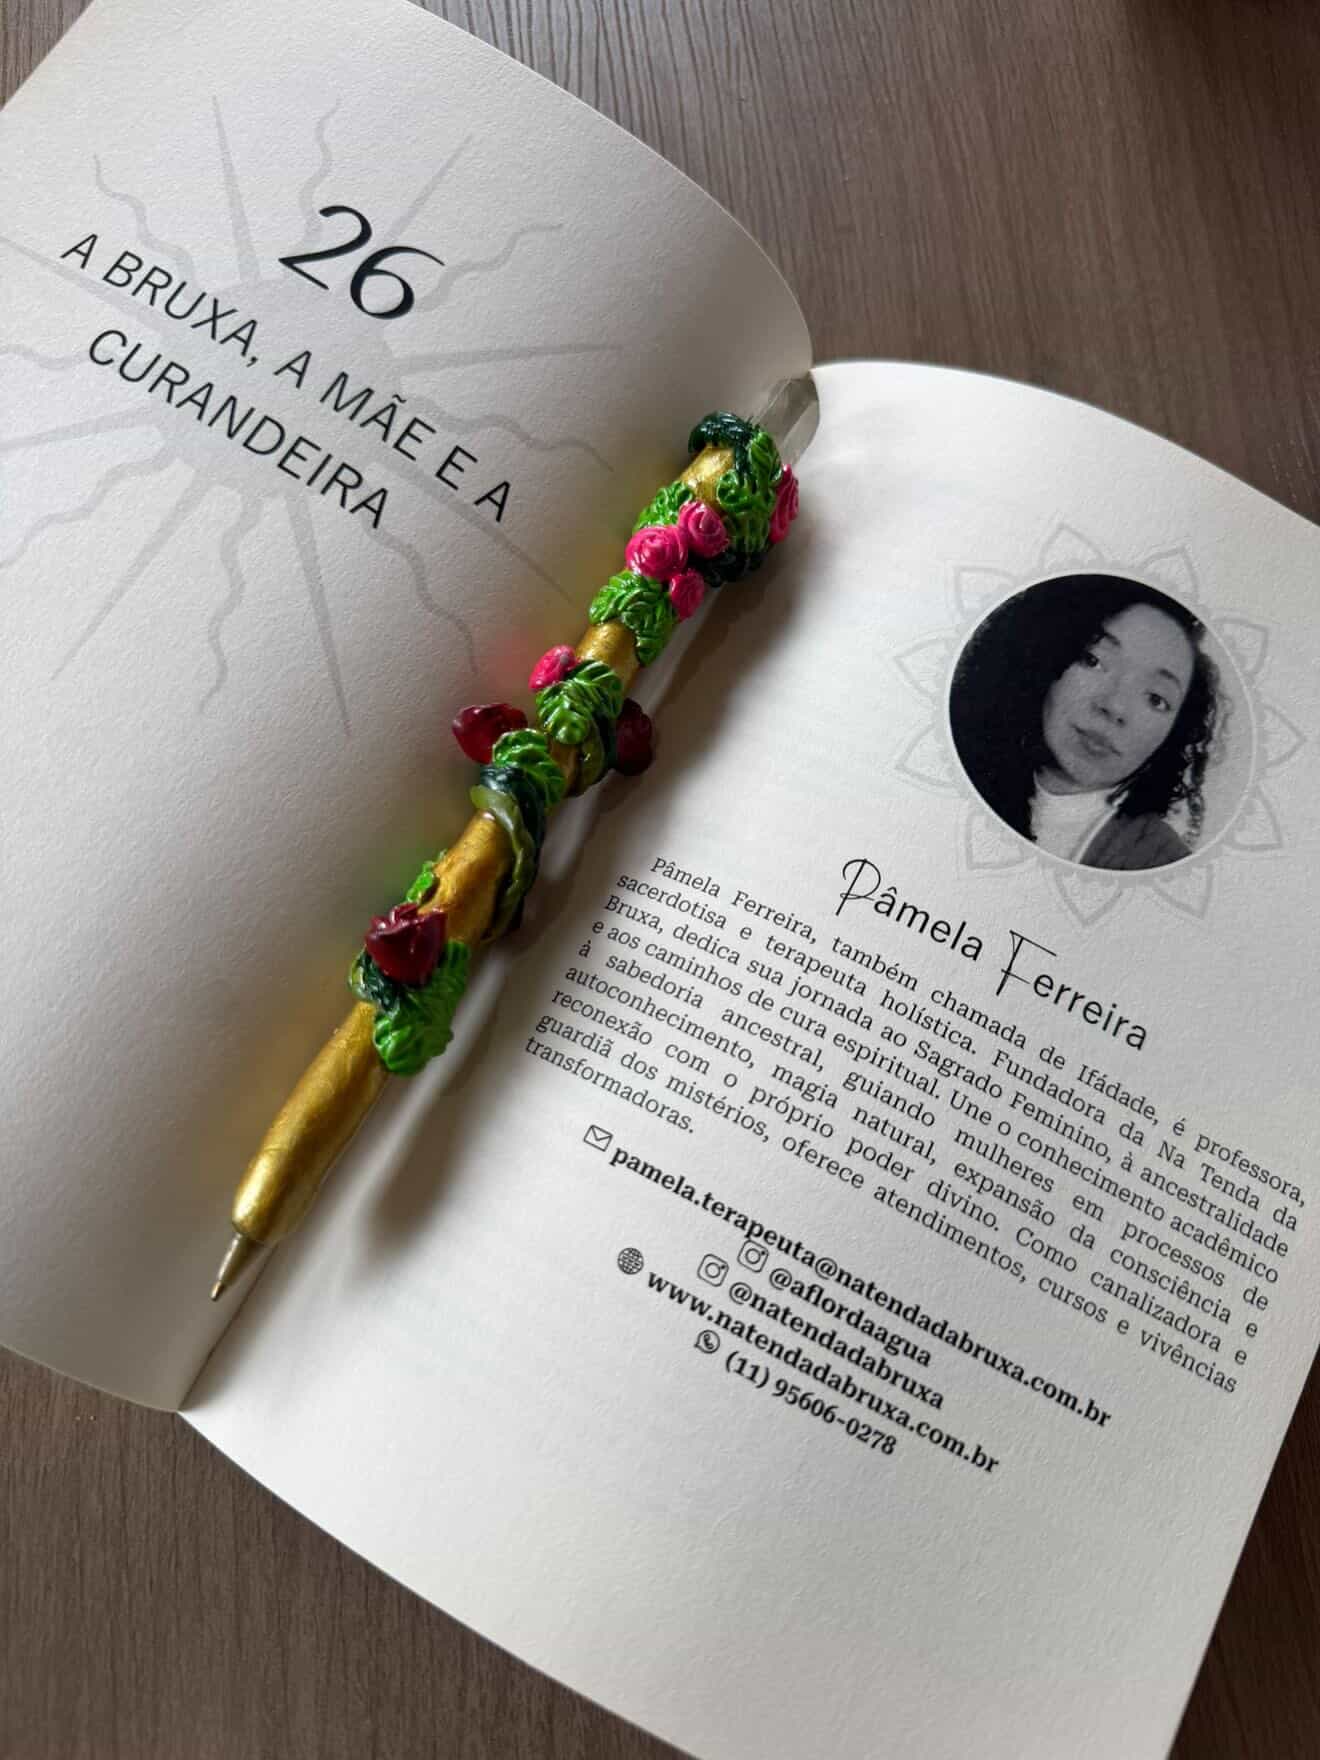 26
A BRUXA, A MÃE E A
CURANDEIRA
Pâmela Ferreira
Pâmela Ferreira, também chamada de Ifádade, é professora,
sacerdotisa e terapeuta holística. Fundadora da Na Tenda da
Bruxa, dedica sua jornada ao Sagrado Feminino, à ancestralidade
e aos caminhos de cura espiritual. Une o conhecimento acadêmico
à sabedoria ancestral, guiando mulheres em processos de
autoconhecimento, magia natural, expansão da consciência e
reconexão com o próprio poder divino. Como canalizadora e
guardiã dos mistérios, oferece atendimentos, cursos e vivências
transformadoras.
pamela.terapeuta@natendadabruxa.com.br
@aflordaagua
@natendadabruxa
www.natendadabruxa.com.br
(11) 95606-0278